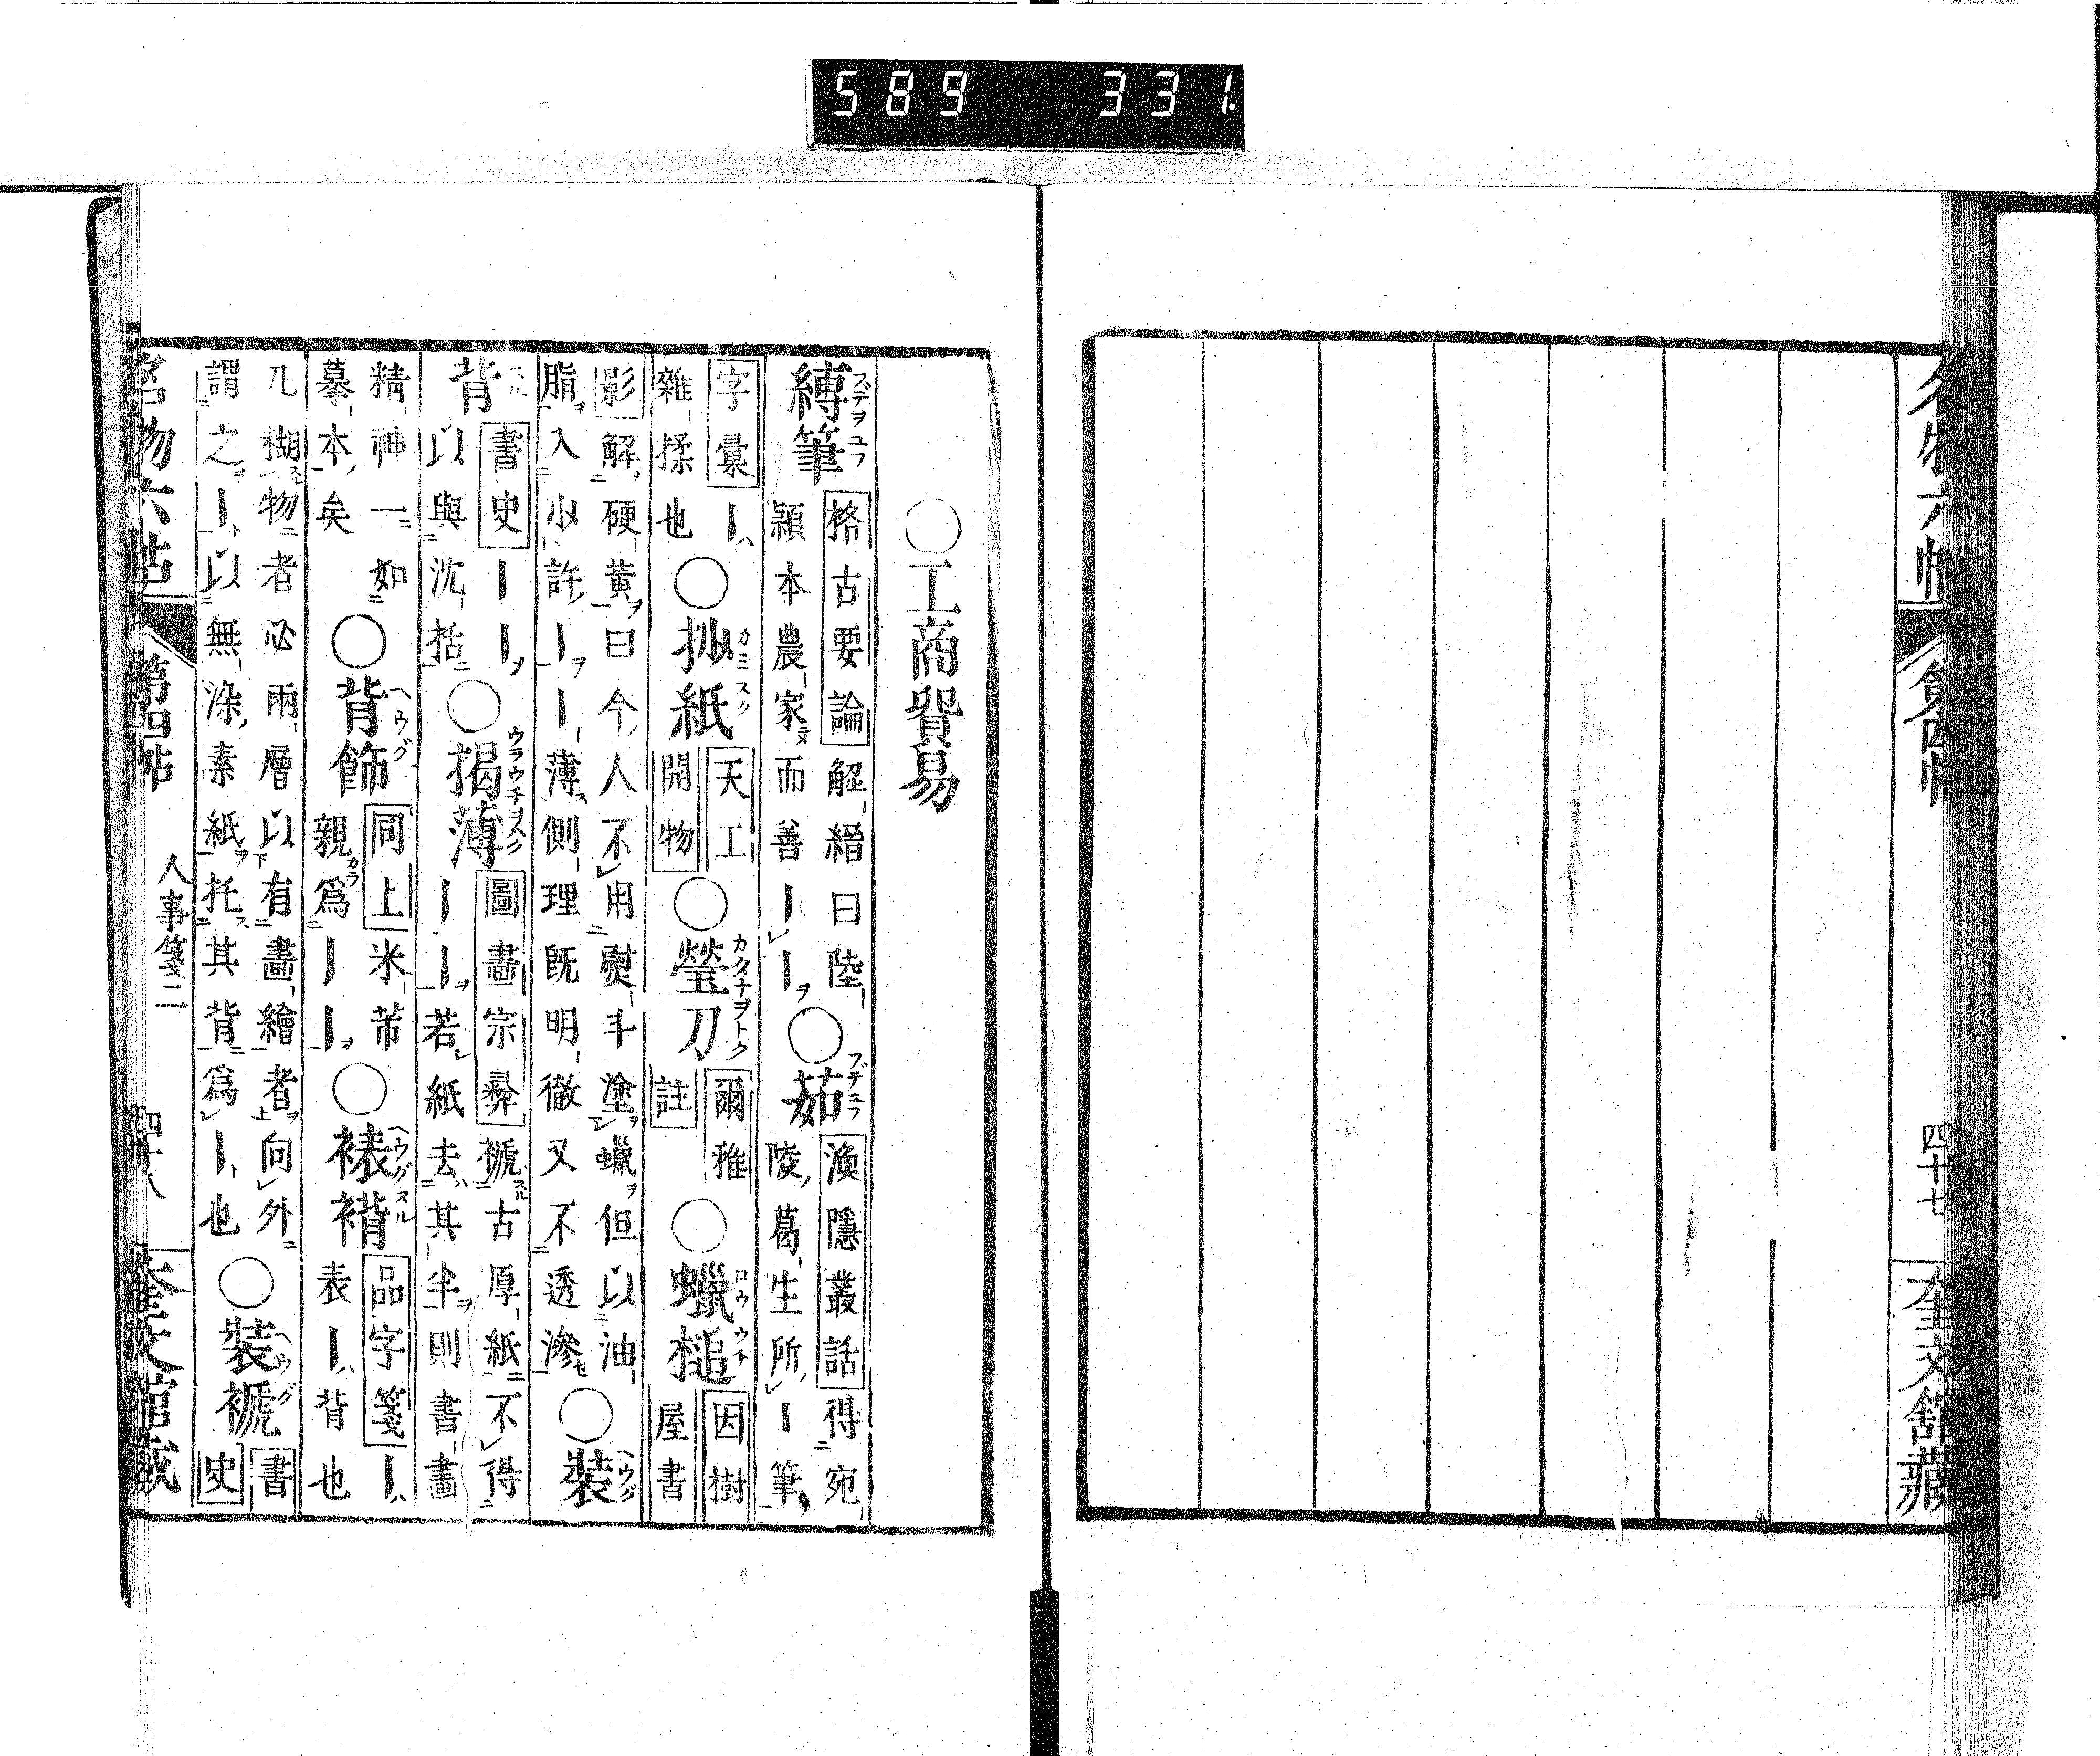 589 331
名物六帖 第四帖 四十七 奎文館藏
○工商貿易
縛筆 フデヲユフ 格古要論 解縉曰陸穎本農家而善丨丨 ○茹 フデユフ 漁隱叢話 得宛陵葛生所丨筆
字彙 丨雜揉也 ○抄紙 カミスク 天工開物 ○瑩刀 カタナヲトク 爾雅註 ○蠟槌 ロウウト 因樹屋書
影 解硬黄曰今人不用熨斗塗蠟但以油脂入少許丨丨薄側理既明徹又不透滲 ○裝 ヘウグ
背 スル 書史 丨丨以與沈括 ○揭薄 ウラウチヲヘク 圖畫宗彜 褫古厚紙不得丨丨若紙去其半則書畫
精神一如摹本矣 ○背飾 ヘウグ 同上 米芾親爲丨丨 ○裱褙 ヘウグスル 品字箋 丨表丨背也
凡糊物者必兩層以有畫繪者向外謂之丨以無染素紙托其背爲丨也 ○裝褫 ヘウグ 書史
名物六帖 第四帖 人事箋二 四十八 奎文館藏